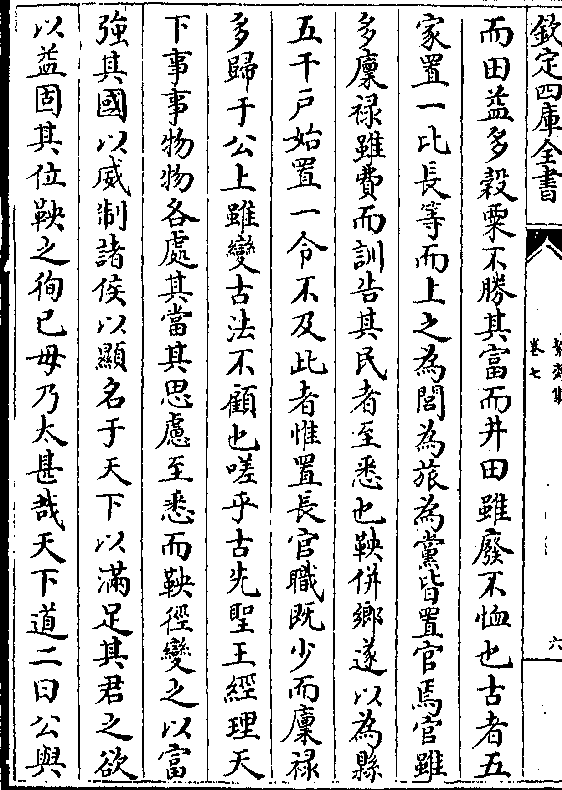 欽定四庫全書
卷七
六
而田益多榖粟不勝其富而井田雖廢不恤也古者五
家置一比長等而上之為閭為旅為黨皆置官焉官雖
多廩禄雖費而訓告其民者至悉也鞅併鄉遂以為縣
五千户始置一令不及此者惟置長官職既少而廩禄
多歸于公上雖變古法不顧也嗟乎古先聖王經理天
下事事物物各處其當其思慮至悉而鞅徑變之以富
強其國以威制諸侯以顯名于天下以滿足其君之欲
以益固其位鞅之徇已毋乃太甚哉天下道二曰公與